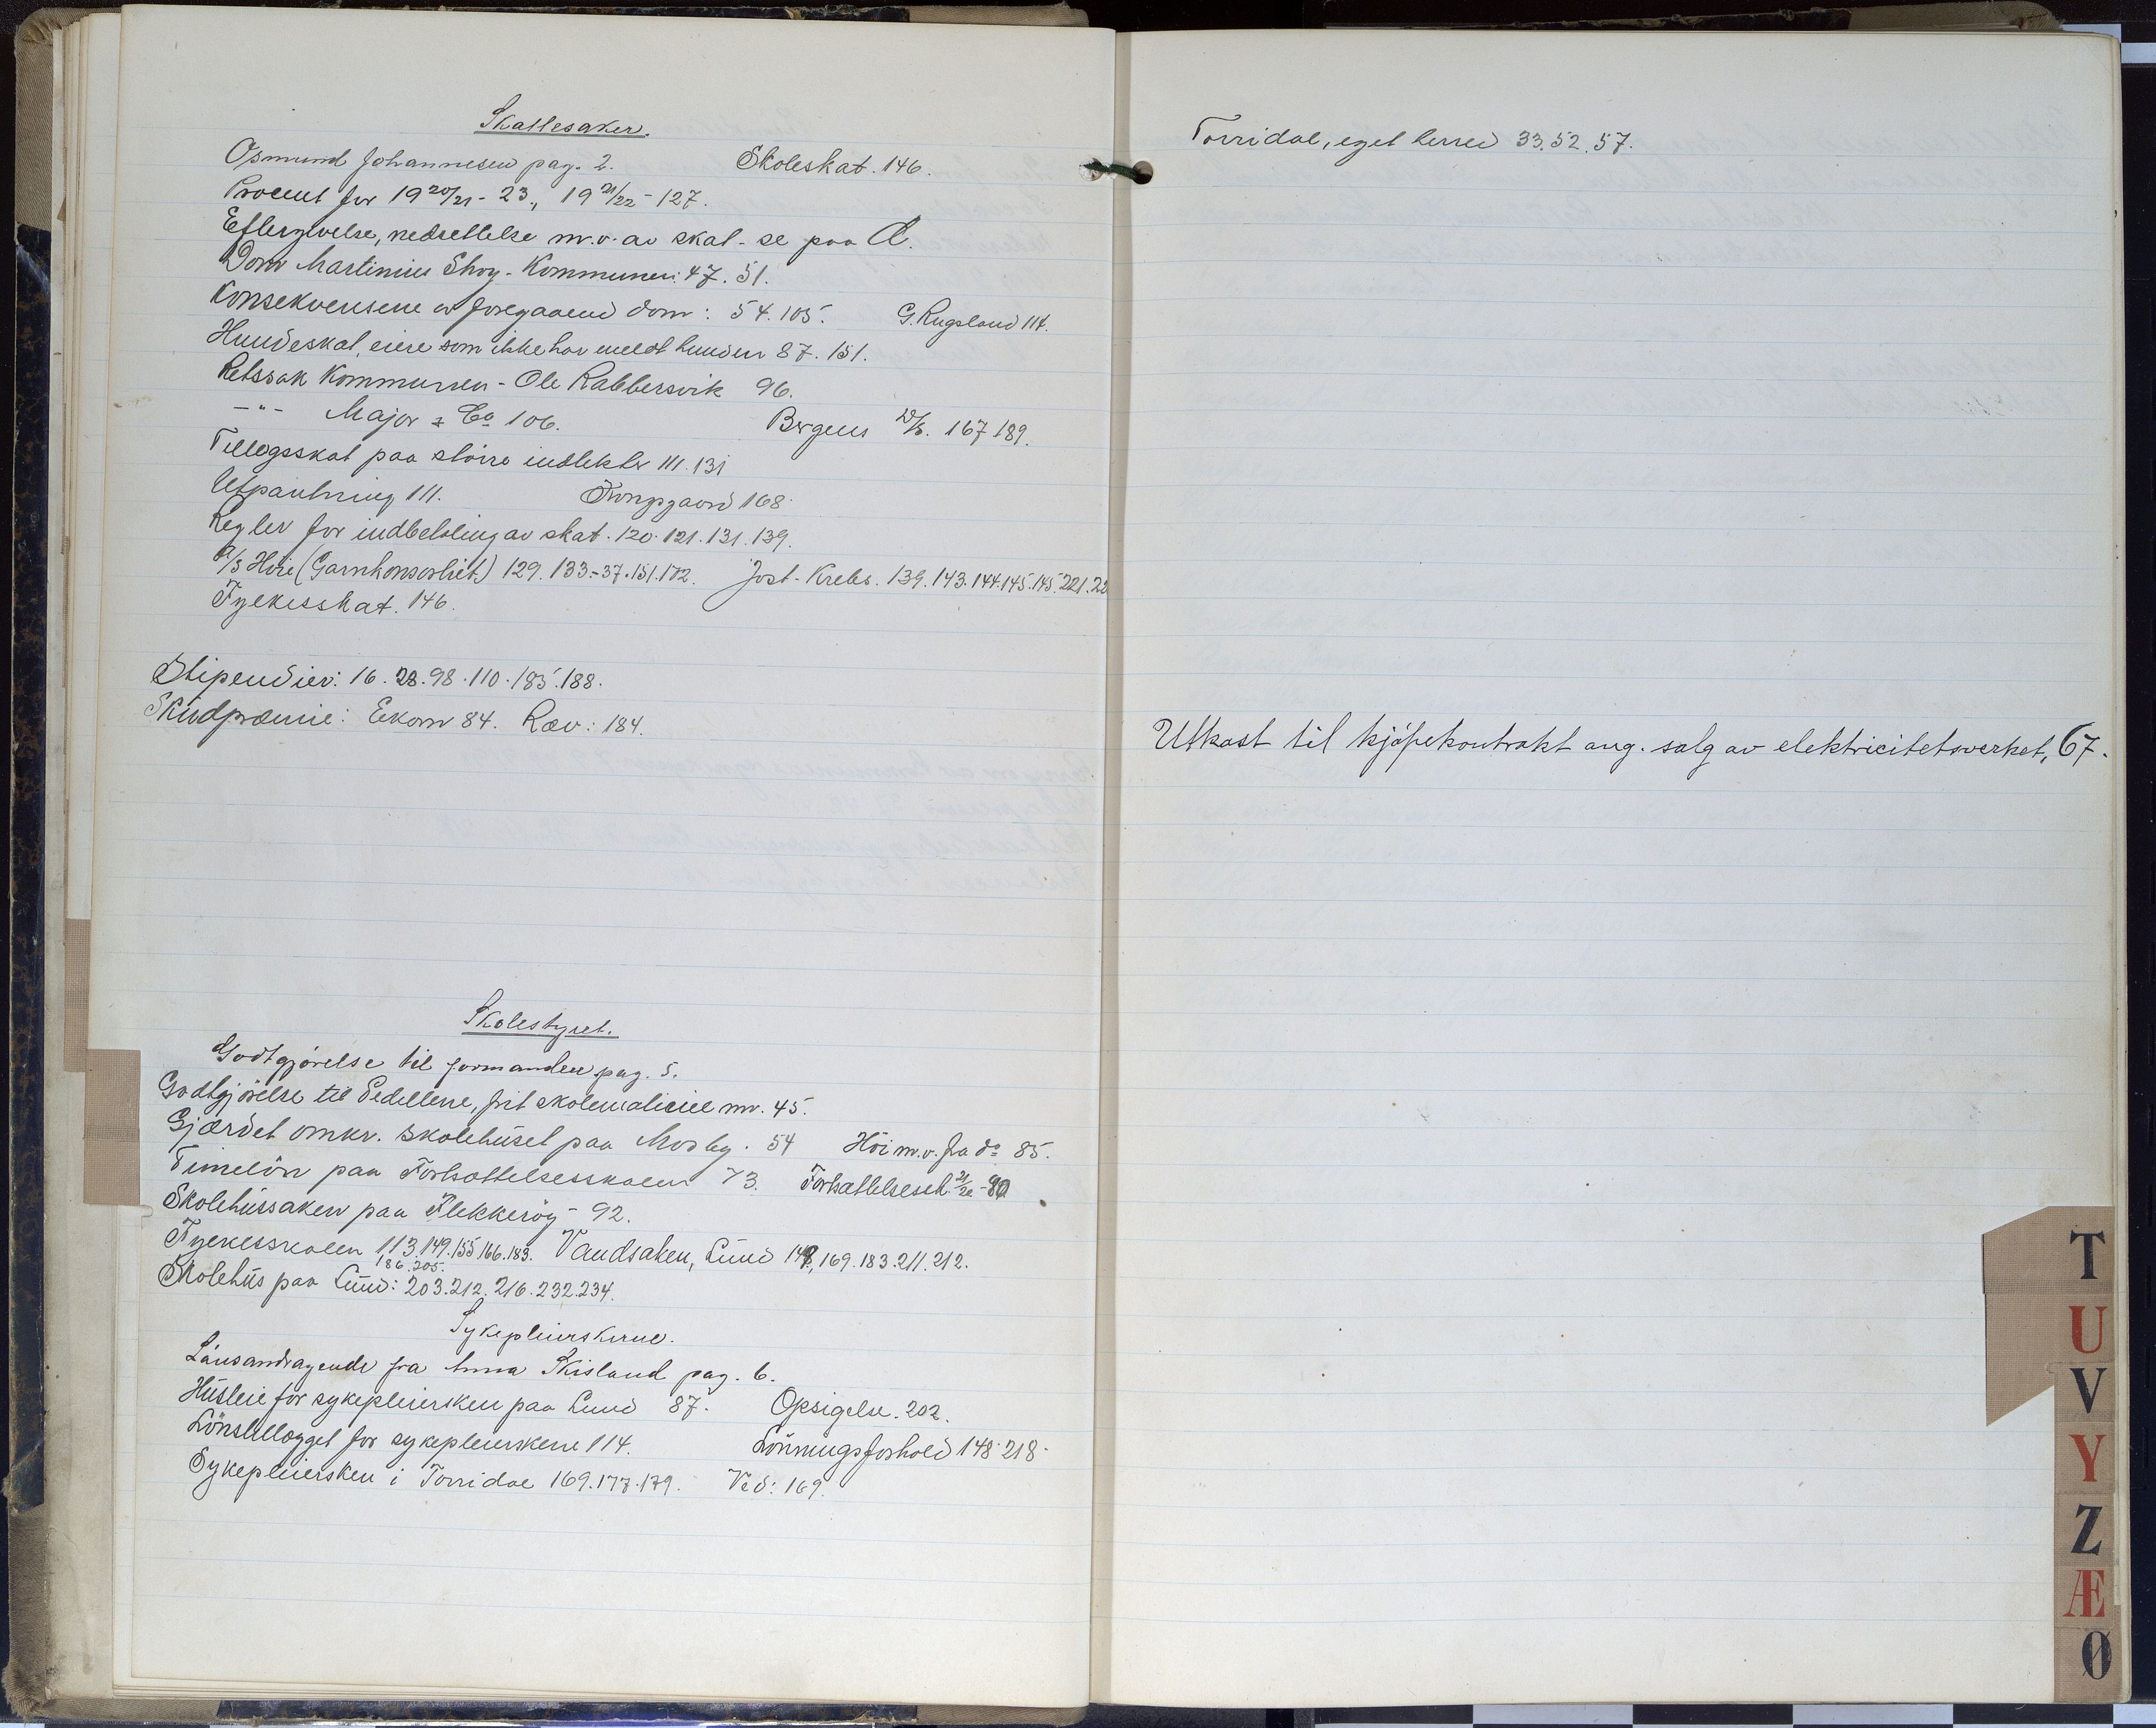 Skattesaker.
Osmund Johannesen pag. 2. Skoleskat. 146.
Procent for 19 20/21 - 23., 19 21/22 - 127.
Eftergivelse, nedsettelse m.v. av skat - se paa A.
Dom Martinius - Kommunen: 47. 51.
Konsekvensene av foregaaend dom: 54. 105. G. Rugsland 114.
Hundeskat, eiere som ikke har meldt hunden 87. 151.
Retssak Kommunen - Ole Rabbersvik 96.
-"- Major & Co 106. Bergens 167 189.
Tillegsskat paa større indtekter 111. 131
Utpantning 111. Kongsgaard 168.
Regler for indbetaling av skat. 120. 121. 131. 139.
A/S (Garnkonsortiet) 129. 133-37. 151. 172. Jost. Krebs. 139. 143. 144. 145. 145. 221. 22
Fylkesskat. 146.
Stipendier: 16. 28. 98. 110. 185. 188.
Skudpræmie: Ekorn 84. Ræv: 184.
Skolestyret.
Godtgjørelse til formanden pag. 5.
Godtgjørelse til Pedellene, frit skolemateriel mv. 45.
Gjærdet omkr. skolehuset paa Mosby. 54 Høi m.v. fra do 85.
Timeløn paa Fortsættelsesskolen 73. Fortsættelsessk. 21/22 - 90
Skolehussaken paa Flekkerøy - 92.
Fylkesskolen 113. 149. 155 166. 183. Vandsaken, Lund 148, 169. 183. 211. 212.
186. 205.
Skolehus paa Lund: 203. 212. 216. 232. 234.
Sykepleierskerne.
Lånsandragende fra Anna Skisland pag. 6.
Husleie for sykepleiersken paa Lund 87. Opsigelse. 202.
Lønstillægget for sykepleierskene 114. Lønningsforhold 148. 218.
Sykepleiersken i Torridal 169. 177. 179. Ved: 169.
Torridal, eget herred 33. 52. 57.
Utkast til kjøpekontrakt ang. salg av elektricitetsverket, 67.
T
U
V
Y
Z
Æ
Ø